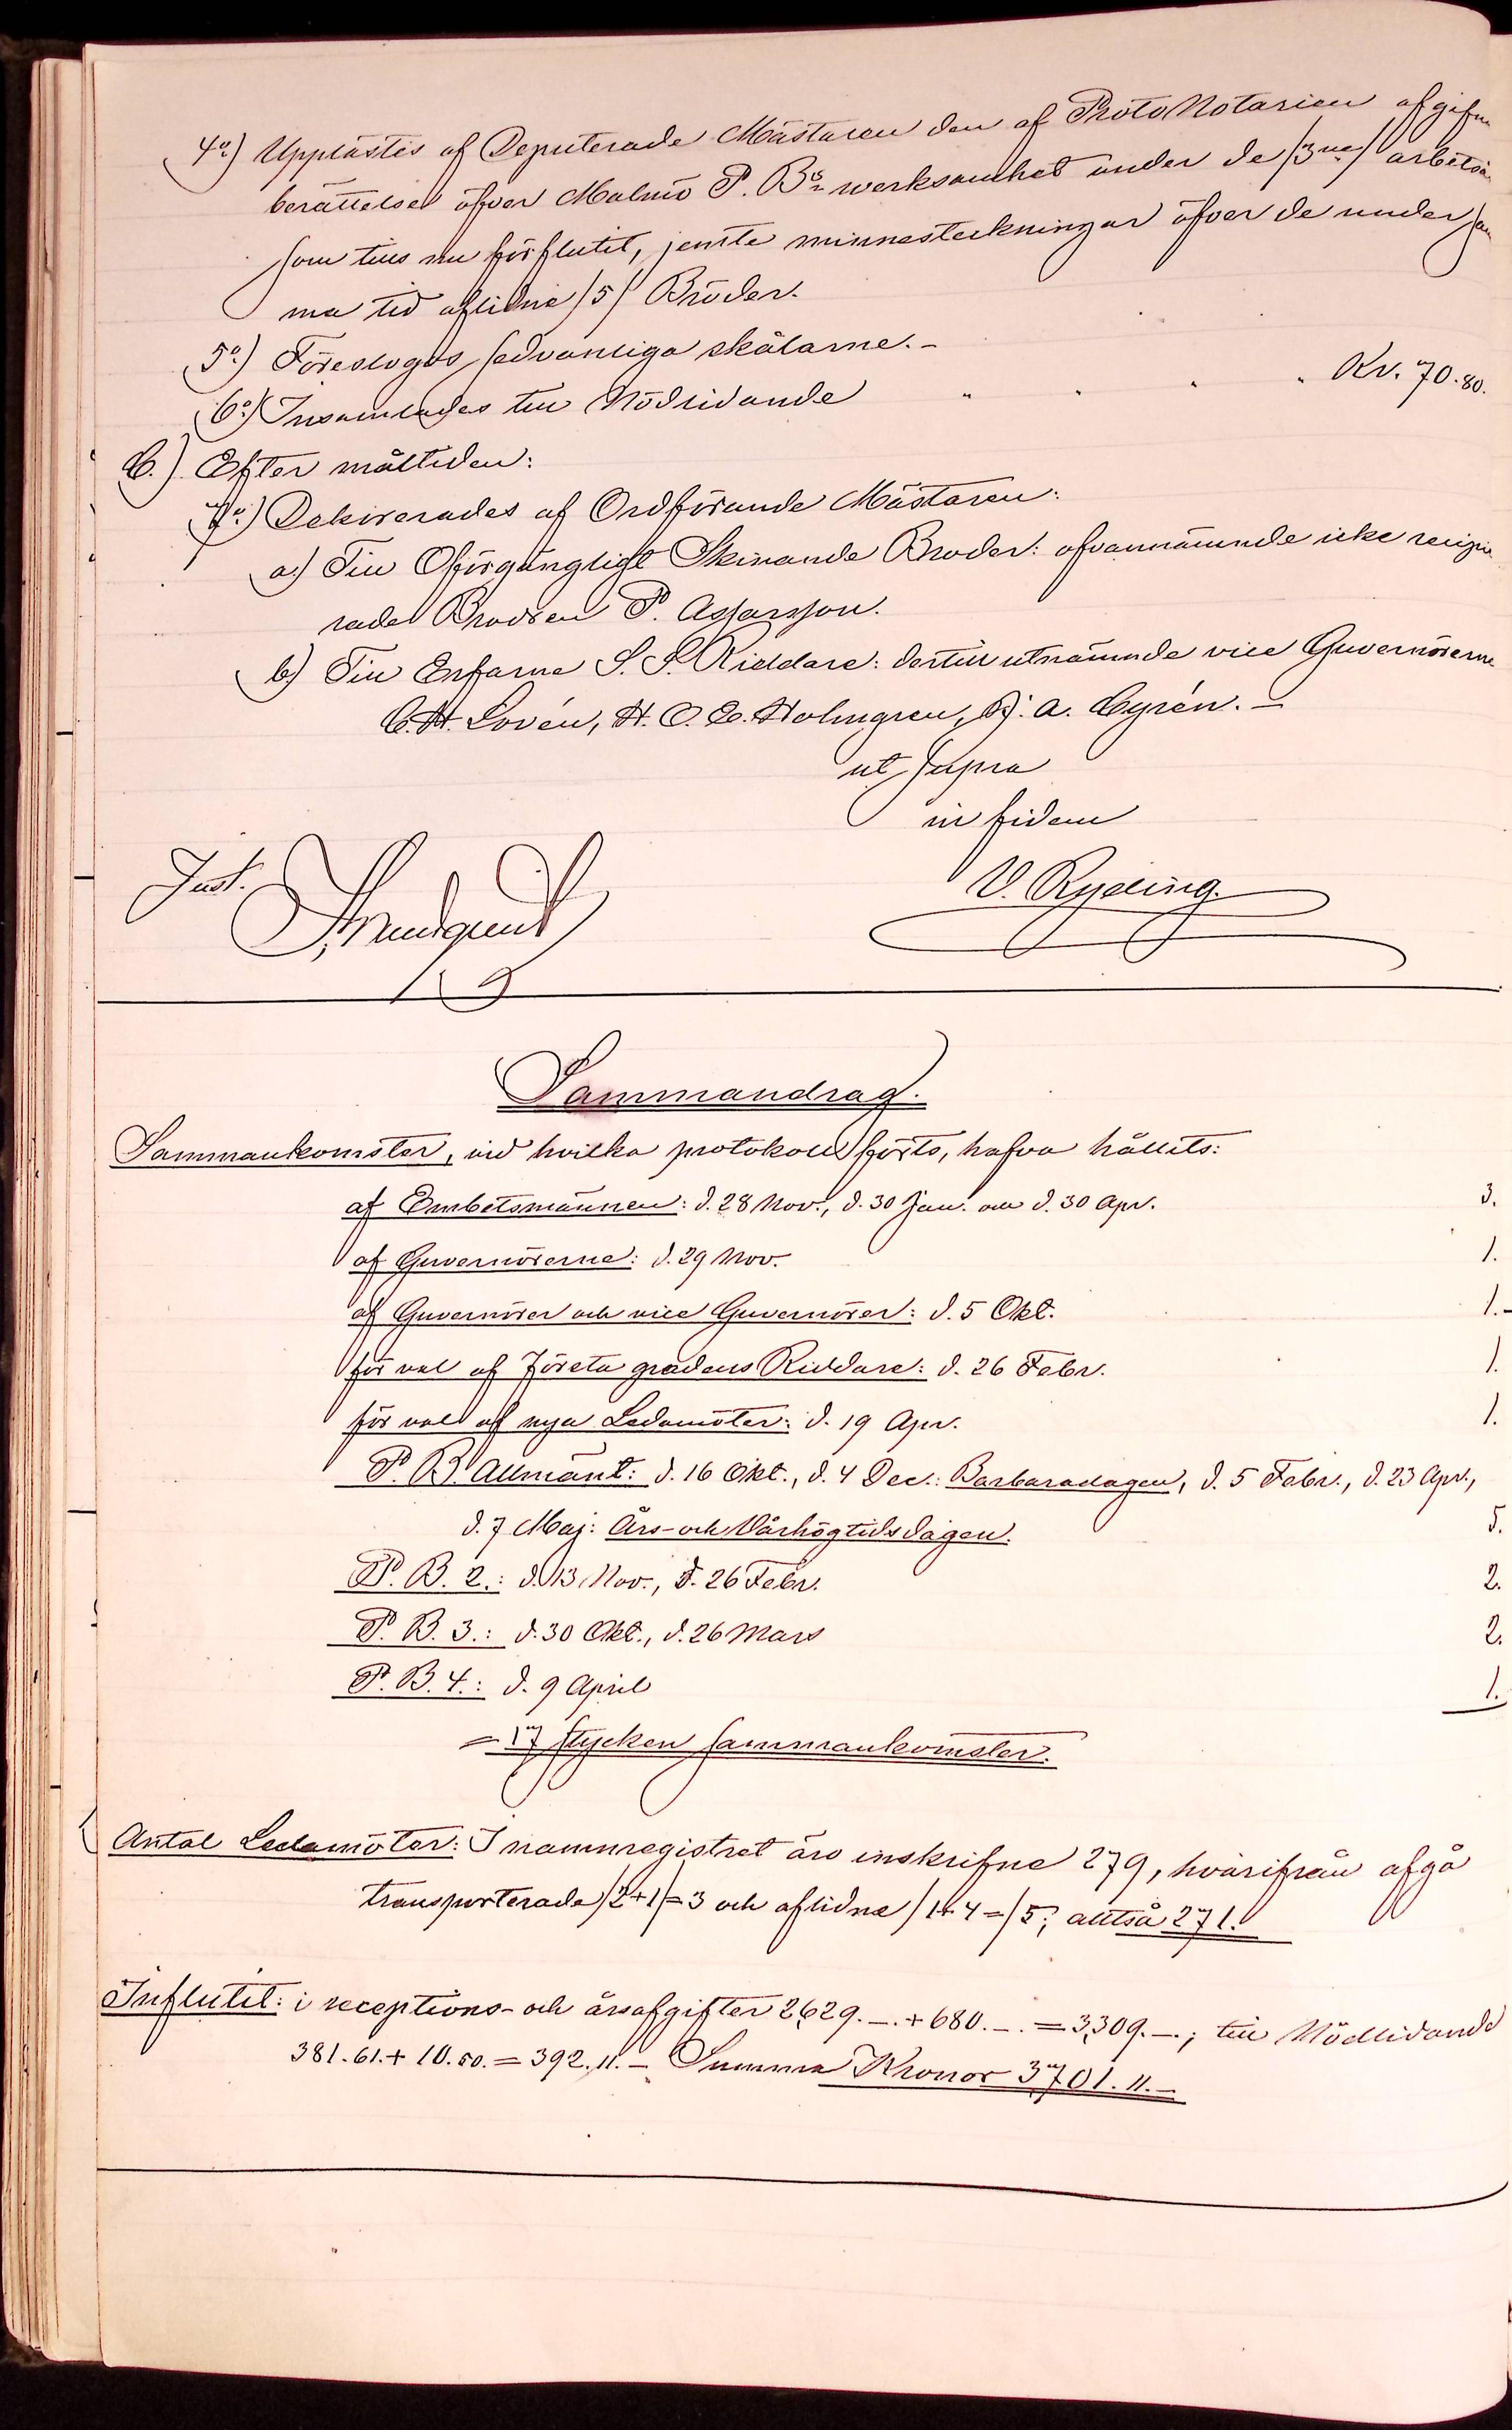 4o) Upplästes af Deputerade Mästaren den af ProtoNotarien afgifn
berättelsen öfver Malmö P. Bs werksamhet under de /3ne/ arbetså
som tills nu förflutit, jemte minnesteckningar öfver de under sam
ma tid aflidne /5/ Bröder.
5o) Föreslogos sedvanliga skålarne. -
6o) Insamlades till Nödlidande " " " Kr. 70.80.
C.) Efter måltiden:
7o) Dekorerades af Ordförande Mästaren:
a) Till Oförgängligt Skinande Broder: ofvannämnde icke recipie
rade Brodren P. Assarsson.
b) Till Erfarne S. S. Riddare: dertill utnämnde vice Guvernörerne
C. H. Lovén, H. O. E. Holmgren, J. A. Cyrén. -
ut supra
in fidem
Just. V. Ryding.
Sammandrag.
Sammankomster, vid hvilka protokoll förts, hafva hållits:
af Embetsmännen: d. 28 Nov., d. 30 Jan. och d. 30 Apr. 3.
af Guvernörerne: d. 29 Nov. 1.
af Guvernörer och vice Guvernörer: d. 5 Okt. 1.-
för val af Första gradens Riddare: d. 26 Febr. 1.
för val af nya Ledamöter: d. 19 Apr. 1.
P. B. Allmänt: d. 16 Okt., d. 4 Dec.: Barbaradagen, d. 5 Febr., d. 23 Apr.,
d. 7 Maj: Års- och Vårhögtidsdagen. 5.
P. B. 2.: d. 13 Nov., d. 26 Febr. 2.
P. B. 3.: d. 30 Okt., d. 26 Mars 2.
P. B. 4.: d. 9 April 1.
= 17 stycken sammankomster.
Antal Ledamöter: I namnregistret äro inskrifne 279, hvarifrån afgå
transporterade /2+1/=3 och aflidne /1+4=/5; alltså 271.
Influtit: i receptions- och årsafgifter 2629.-. + 680.-. = 3,309.-.; till Nödlidande
381.61. + 10.50. = 392.11. - Summa Kronor 3701.11.-